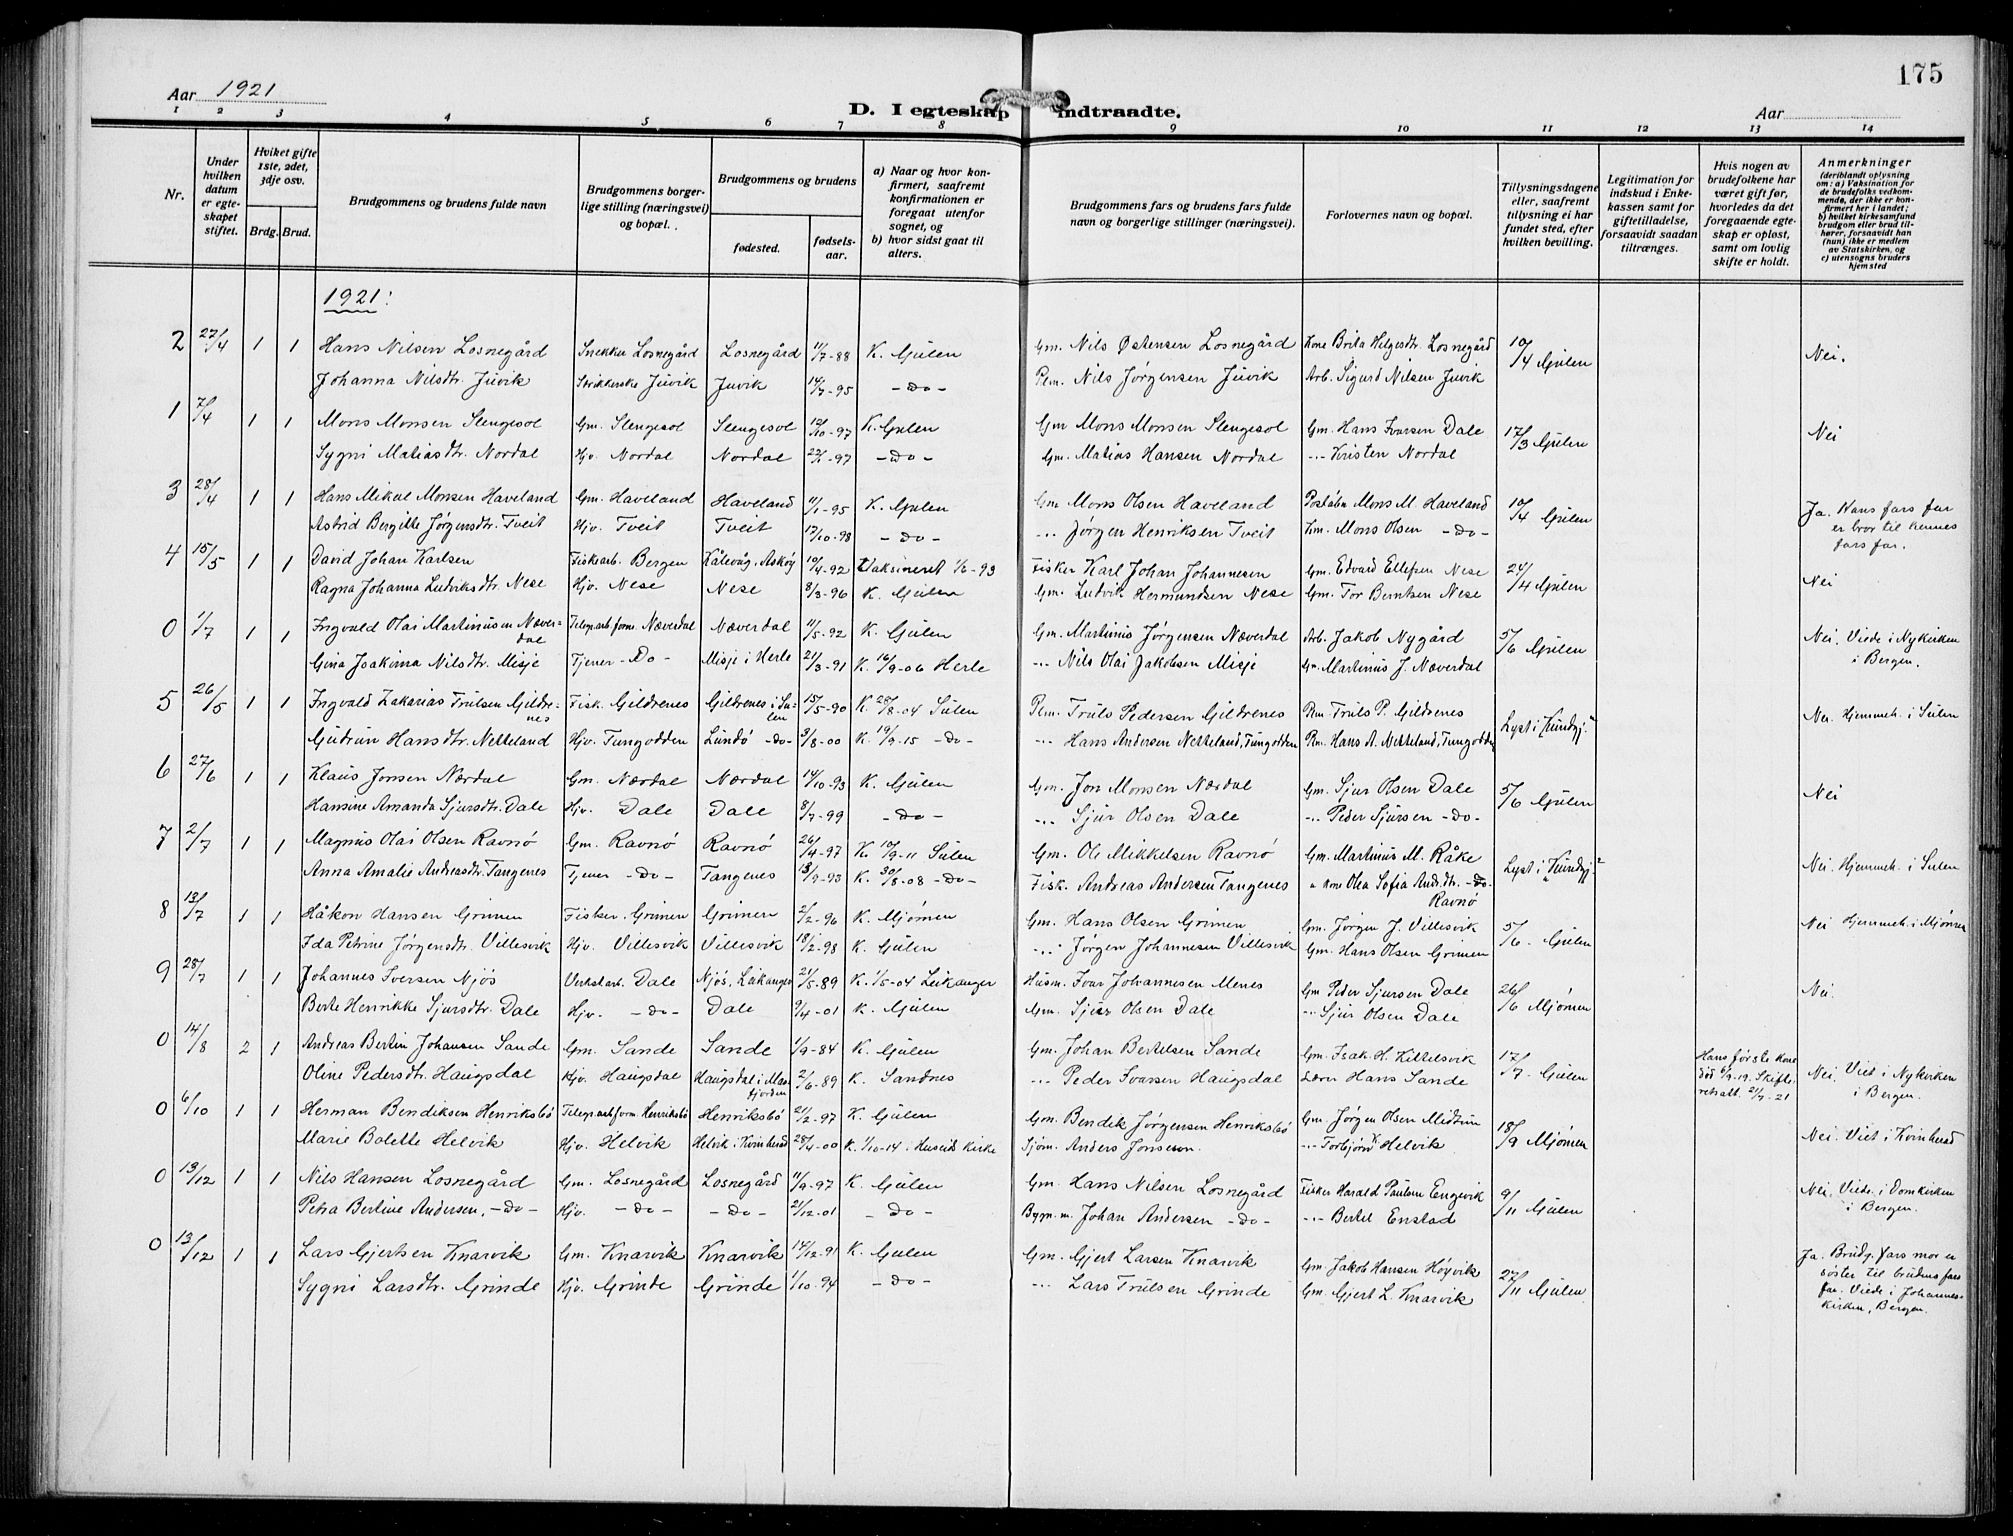 175
Aar 1921
D. I egteskap indtraadte.
Aar
1 2 3 4 5 6 7 8 9 10 11 12 13 14
Nr.
Under hvilken datum er egteskapet stiftet.
Hviket gifte 1ste, 2det, 3dje osv.
Brdg. Brud.
Brudgommens og brudens fulde navn
Brudgommens borgerlige stilling (næringsvei) og bopæl.
Brudgommens og brudens
fødested.
fødselsaar.
a) Naar og hvor konfirmert, saafremt konfirmationen er foregaat utenfor sognet, og
b) hvor sidst gaat til alters.
Brudgommens fars og brudens fars fulde navn og borgerlige stillinger (næringsvei).
Forlovernes navn og bopæl.
Tillysningsdagene eller, saafremt tillysning ei har fundet sted, efter hvilken bevilling.
Legitimation for indskud i Enkekassen samt for giftetilladelse, forsaavidt saadan tiltrænges.
Hvis nogen av brudefolkene har været gift før, hvorledes da det foregaaende egteskap er opløst, samt om lovlig skifte er holdt.
Anmerkninger (deriblandt oplysning om: a) Vaksination for de brudefolks vedkommende, der ikke er konfirmert her i landet; b) hvilket kirkesamfund brudgom eller brud tilhører, forsaavidt han (hun) ikke er medlem av Statskirken, og c) utensogns bruders hjemsted
1921:
2 27/4 1 1 Hans Nilsen Losnegård Snekker Losnegård Losnegård 11/7-88 K. Gulen Gm. Nils Østensen Losnegård Kone Brita Helgesdtr. Losnegård 10/4 Gulen Nei.
Johanna Nilsdtr. Juvik Strikkerske Juvik Juvik 14/7-95 -do- Plm. Nils Jørgensen Juvik Arb. Sigurd Nilsen Juvik
1 7/4 1 1 Mons Monsen Slengesol Gm. Slengesol Slengesol 12/10-97 K. Gulen Gm Mons Monsen Slengesol Gm. Hans Ivarsen Dale 17/3 Gulen Nei
Sygni Matiasdtr. Nordal Hjv. Nordal Nordal 22/1-97 -do- Gm. Matias Hansen Nordal -"- Kristen Nordal
3 28/4 1 1 Hans Mikal Monsen Haveland Gm. Haveland Haveland 11/1-95 K. Gulen Gm Mons Olsen Haveland Poståbn Mons M. Haveland 10/4 Gulen Ja. Hans fars far er bror til hennes fars far.
Astrid Bergitte Jørgensdtr. Tveit Hjv. Tveit Tveit 17/10-98 -do- -"- Jørgen Henriksen Tveit Gm. Mons Olsen -do-
4 15/5 1 1 David Johan Karlsen Fiskearb. Bergen Kålevåg, Askøy 10/4-92 Vaksineret 1/6-93 Fisker Karl Johan Johannesen Gm. Edvard Ellefsen Nese 24/4 Gulen Nei
Ragna Johanna Ludviksdtr. Nese Hjv. Nese Nese 8/3-96 K. Gulen Gm. Ludvik Hermundsen Nese Gm. Tor Berntsen Nese
0 1/7 1 1 Ingvald Olai Martinusen Næverdal Telegr.arb.form. Næverdal Næverdal 11/5-92 K. Gulen Gm. Martinus Jørgensen Næverdal Arb. Jakob Nygård 5/6 Gulen Nei. Viede i Nykirken i Bergen.
Gina Joakima Nilsdtr. Misje Tjener -Do- Misje i Herle 21/3-91 K. 16/9-06 Herle -"- Nils Olai Jakobsen Misje Gm. Martinus J. Næverdal
5 26/5 1 1 Ingvald Zakarias Trulsen Gildrenes Fisk. Gildrenes Gildrenes i Sulen 15/5-90 K. 28/8-04 Sulen Plm. Truls Pedersen Gildrenes Plm Truls P. Gildrenes Lyst i "Kundgj." Nei. Hjemmeh. i Sulen
Gudrun Hansdtr. Netteland Hjv. Tungodden Lundø -do- 3/8-00 K. 19/9-15 -do- -"- Hans Andersen Netteland, Tungodden Pm. Hans A. Netteland, Tungodden
6 27/6 1 1 Klaus Jonsen Nordal Gm. Nordal Nordal 14/10-93 K. Gulen Gm. Jon Monsen Nordal Gm. Sjur Olsen Dale 5/6 Gulen Nei
Hansine Amanda Sjursdtr. Dale Hjv. Dale Dale 8/7-99 -do- -"- Sjur Olsen Dale -"- Peder Sjursen -do-
7 2/7 1 1 Magnus Olai Olsen Ravnø Gm. Ravnø Ravnø 26/4-97 K. 10/9-11 Sulen Gm. Ole Mikkelsen Ravnø Gm. Martinus M. Råke Lyst i "Kundgj." Nei Hjemmeh. i Sulen
Anna Amalie Andreasdtr. Tangenes Tjener -do- Tangenes 13/9-93 K. 30/8-08 -do- Fisk. Andreas Andersen Tangenes " kone Olea Sofia Andr.dtr. -do- Ravnø
8 13/7 1 1 Håkon Hansen Grimen Fisker. Grimen Grimen 2/2-96 K. Mjømen Gm. Hans Olsen Grimen Gm. Jørgen J. Villesvik 5/6. Gulen Nei Hjemmeh. i Mjømen
Ida Petrine Jørgensdtr. Villesvik Hjv. Villesvik Villesvik 18/2-98 K. Gulen -"- Jørgen Johannesen Villesvik Gm. Hans Olsen Grimen
9 28/7 1 1 Johannes Iversen Njøs Verkst.arb. Dale Njøs, Leikanger 21/5-89 K. 1/5-04 Leikanger Husm. Ivar Johannesen Menes Gm Peder Sjursen Dale 26/6 Mjømen Nei.
Berte Henrikke Sjursdtr. Dale Hjv. -do- Dale 9/4-01 K. Gulen Gm. Sjur Olsen Dale -"- Sjur Olsen Dale
0 14/8 2 1 Andreas Bertin Johansen Sande Gm. Sande Sande 1/9-84 K. Gulen Gm. Johan Bertelsen Sande Gm. Isak H. Kittelsvik 17/7. Gulen Hans første kone død 6/9-19. Skifteretsatt. 21/7-21 Nei. Viet i Nykirken i Bergen.
Oline Pedersdtr. Haugsdal Hjv. Haugsdal Haugsdal i Masfjorden 2/6-89 K. Sandnes -"- Peder Ivarsen Haugsdal Lærer Hans Sande
0 6/10 1 1 Herman Bendiksen Henriksbø Telegr.arb.form. Henriksbø Henriksbø 21/2-97 K. Gulen Gm. Bendik Jørgensen Henriksbø Gm. Jørgen Olsen Midtun 18/9 Mjømen Nei. Viet i Kvinherad
Marie Bolette Helvik Hjv. Helvik Helvik i Kvinherad 28/4-00 K. 1/10-14 i Huseids Kirke Sjøm. Anders Jonsson. -"- Torbjørn K. Helvik
0 13/12 1 1 Nils Hansen Losnegård Gm. Losnegård Losnegård 11/9-97 K. Gulen Gm. Hans Nilsen Losnegård Fisker Harald Paulsen Engevik 9/11 Gulen Nei. Viede i Domkirken i Bergen.
Petra Bertine Andersen, -do- Hjv. -do- -do- 2/12-01 -do- Bygn.m. Johan Andersen -do- -"- Bertel Enstad
0 13/12 1 1 Lars Gjertsen Knarvik Gm. Knarvik Knarvik 14/12-91 K. Gulen Gm. Gjert Larsen Knarvik Gm. Jakob Hansen Høyvik 27/11 Gulen Ja. Brudg. fars mor er søster til brudens fars far. Viede i Johanneskirken, Bergen.
Sygni Larsdtr. Grinde Hjv. Grinde Grinde 1/10-94 -do- -"- Lars Trulsen Grinde Gm. Gjert L. Knarvik